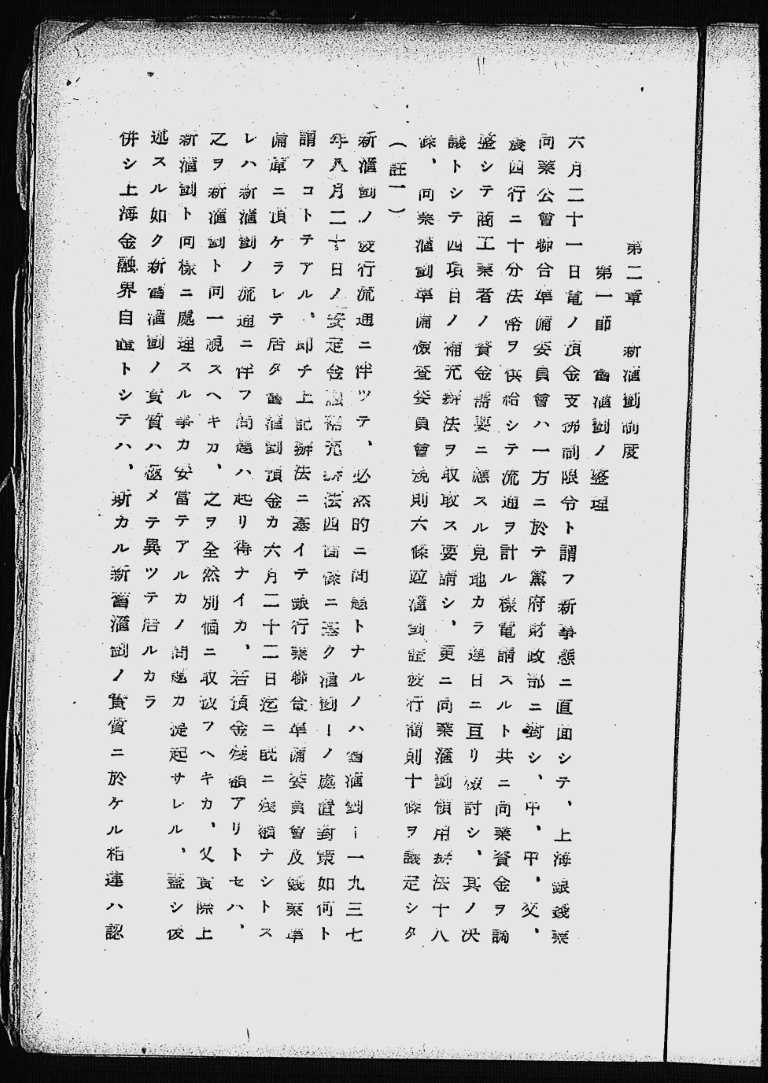 第二章　新滙劃制度
第一節　舊滙劃ノ整理
六月二十一日電ノ預金支拂制限令ト謂フ新事態ニ直面シテ、上海銀錢業
同業公會聯合準備委員會ハ一方ニ於テ黨府財政部ニ對シ、中、中、交、
農四行ニ十分法幣ヲ供給シテ流通ヲ計ル樣電請スルト共ニ同業資金ヲ調
整シテ商工業者ノ資金需要ニ應スル見地カラ連日ニ亘リ檢討シ、其ノ決
議トシテ四項目ノ補充辦法ヲ収取ス要請シ、更ニ同業滙劃領用辦法十八
條、同業滙劃準備檢査委員會規則六條並滙劃證發行簡則十條ヲ議定シタ
（註一）
新滙劃ノ發行流通ニ伴ツテ、必然的ニ問題トナルノハ舊滙劃ー一九三七
年八月二十日ノ安定金融補充辦法四箇條ニ基ク滙劃ーノ處置對策如何ト
謂フコトテアル、即チ上記辦法ニ基イテ銀行業聯合準備委員會及錢業準
備庫ニ預ケラレテ居タ舊滙劃預金カ六月二十二日迄ニ既ニ殘額ナシトス
レハ新滙劃ノ流通ニ伴フ問題ハ起リ得ナイカ、若預金殘額アリトセハ、
之ヲ新滙劃ト同一視スヘキカ、之ヲ全然別個ニ取扱フヘキカ、又實際上
新滙劃ト同樣ニ處理スル事カ妥當テアルカノ問題カ提起サレル、蓋シ後
述スル如ク新舊滙劃ノ實質ハ極メテ異ツテ居ルカラ
併シ上海金融界自體トシテハ、斯カル新舊滙劃ノ實質ニ於ケル相違ハ認